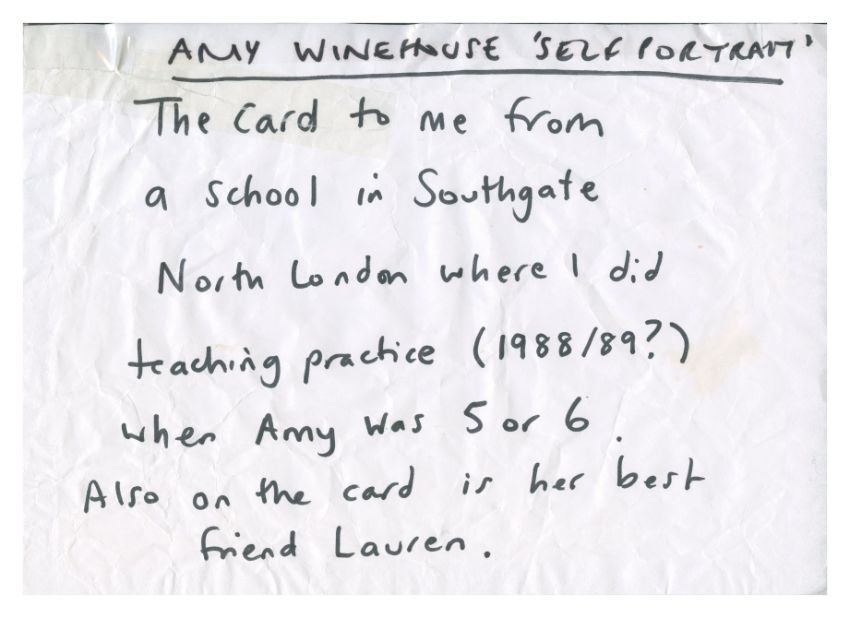 AMY WINEHOUSE 'SELF PORTRAIT'
The Card to me from
a school in Southgate
North London where I did
teaching practice (1988/89?)
when Amy was 5 or 6.
Also on the card is her best
friend Lauren.